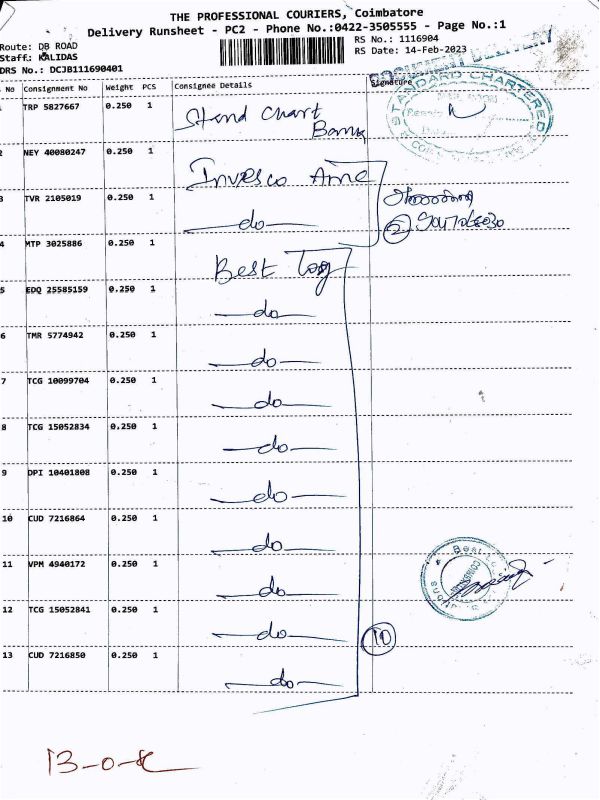 THE PROFESSIONAL COURIERS, Coimbatore
Delivery Runsheet - PC2 - Phone No.:0422-3505555 - Page No.:1
Route: DB ROAD
RS No.: 1116904
Staff: KALIDAS
RS Date: 14-Feb-2023
DRS No.: DCJB111690401
No Consignment No Weight PCS Consignee Details Signature
TRP 5827667 0.250 1 Stand Chart Bank
STANDARD CHARTERED
2 NEY 40080247 0.250 1 Invesco
3 TVR 2105019 0.250 1 do
2
4 MTP 3025886 0.250 1 Best
5 EDQ 25585159 0.250 1 do
6 TMR 5774942 0.250 1 do
7 TCG 10099704 0.250 1 do
8 TCG 15052834 0.250 1 do
9 DPI 10401808 0.250 1 do
10 CUD 7216864 0.250 1 do
11 VPM 4940172 0.250 1 do
Best
12 TCG 15052841 0.250 1 do
10
13 CUD 7216850 0.250 1 do
13-0-